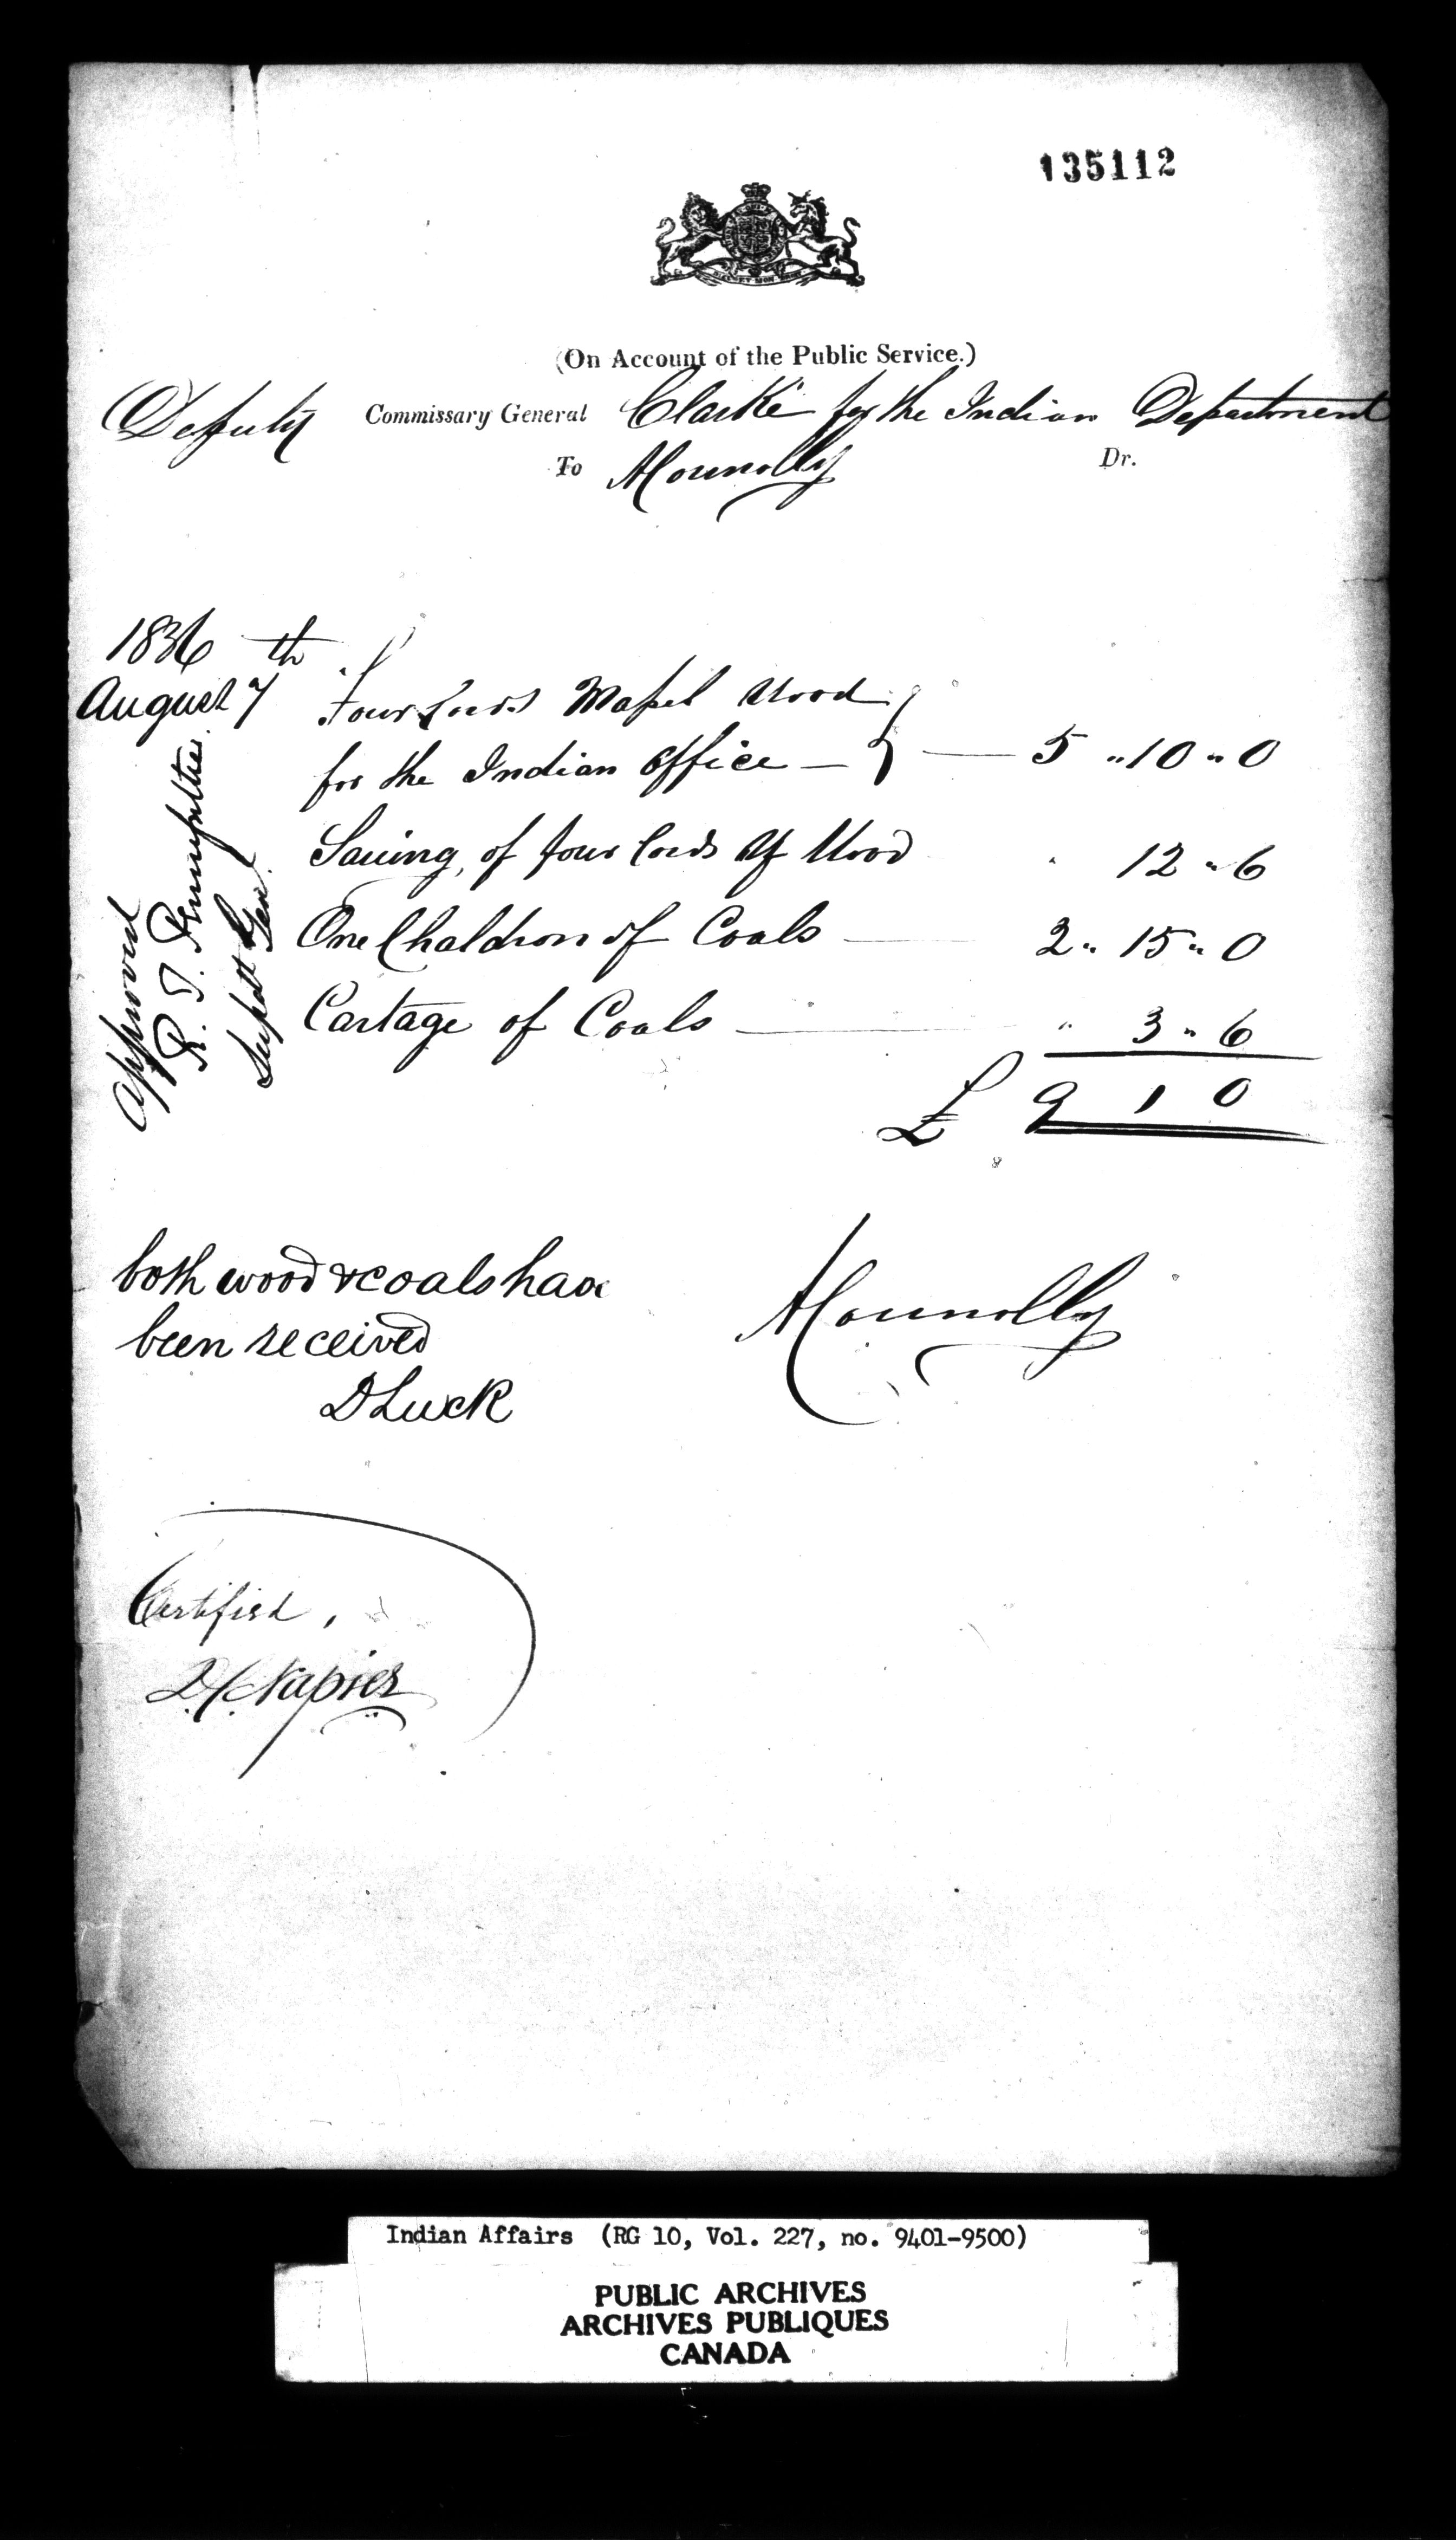 135112
(On Account of the Public Service.)
Deputy Commissary General Clarke for the Indian Department
To AConnolly Dr.
1836
August 7th Four Cords Mapel Wood
for the Indian Office — } — 5 " 10 " 0
Sawing, of four Cords of Wood " 12 " 6
One Chaldron of Coals — 2 " 15 " 0
Cartage of Coals — " 3 " 6
£ 9 1 0
Approved
R. T. Pennefather
Supdt Genl.
both wood & coals have
been received
D Luck
AConnolly
Certified,
D.C. Napier
Indian Affairs (RG 10, Vol. 227, no. 9401-9500)
PUBLIC ARCHIVES
ARCHIVES PUBLIQUES
CANADA